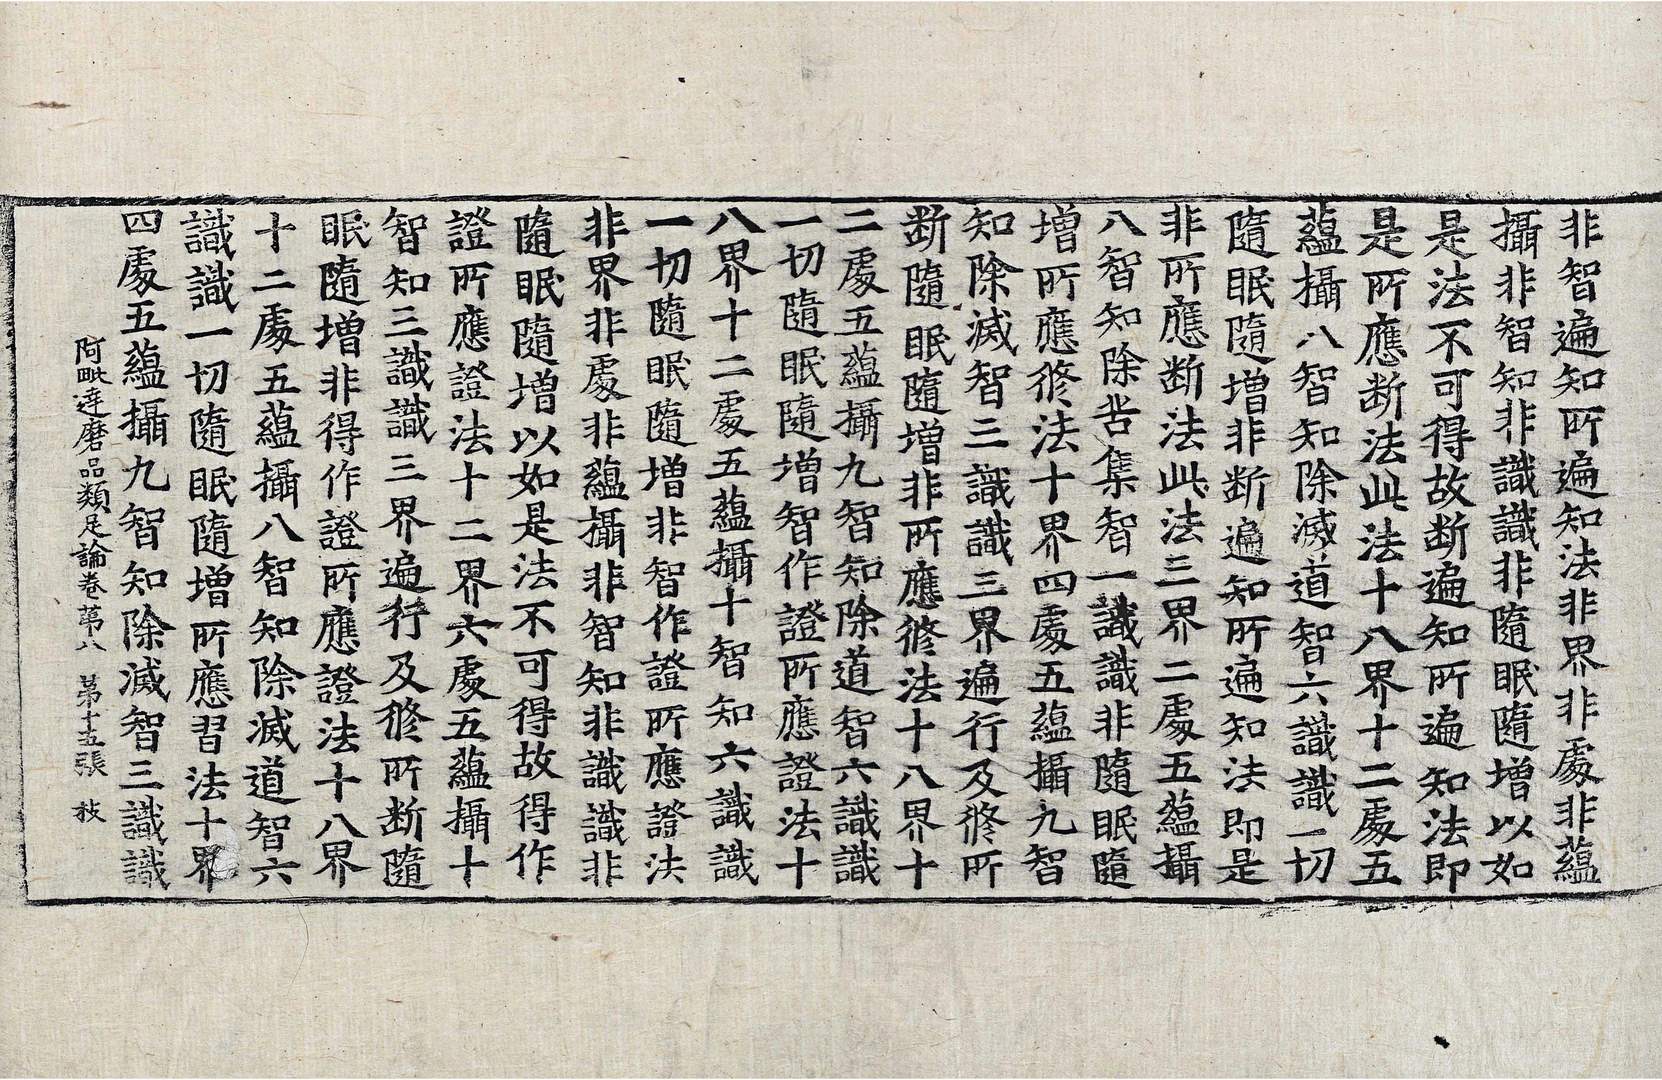 非智遍知所遍知法非界非處非蘊
攝非智知非識識非隨眠隨增以如
是法不可得故断遍知所遍知法即
是所應断法此法十八界十二處五
蘊攝八智知除滅道智六識識一切
隨眠隨增非断遍知所遍知法即是
非所應断法此法三界二處五蘊攝
八智知除苦集智一識識非隨眠隨
增所應修法十界四處五蘊攝九智
知除滅智三識識三界遍行及修所
断隨眠隨增非所應修法十八界十
二處五蘊攝九智知除道智六識識
一切隨眠隨增智作證所應證法十
八界十二處五蘊攝十智知六識識
一切隨眠隨增非智作證所應證法
非界非處非蘊攝非智知非識識非
隨眠隨增以如是法不可得故得作
證所應證法十二界六處五蘊攝十
智知三識識三界遍行及修所断隨
眠隨增非得作證所應證法十八界
十二處五蘊攝八智知除滅道智六
識識一切隨眠隨增所應習法十界
四處五蘊攝九智知除滅智三識識
阿毗達磨品類足論卷第八 第十五張 枝